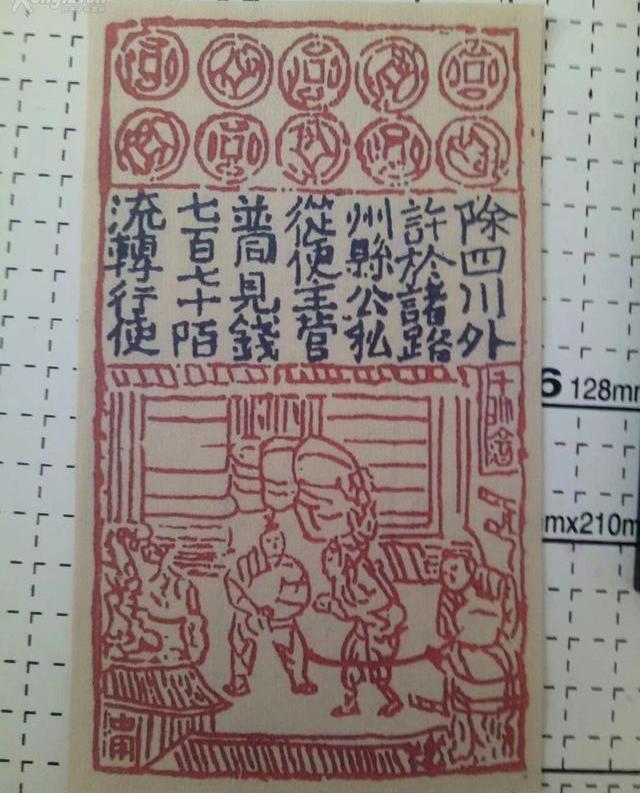 除四川外
許於諸路
州縣公私
從便主管
並同見錢
七百七十陌
流轉行使
千斯倉
6 128mm
mx210m